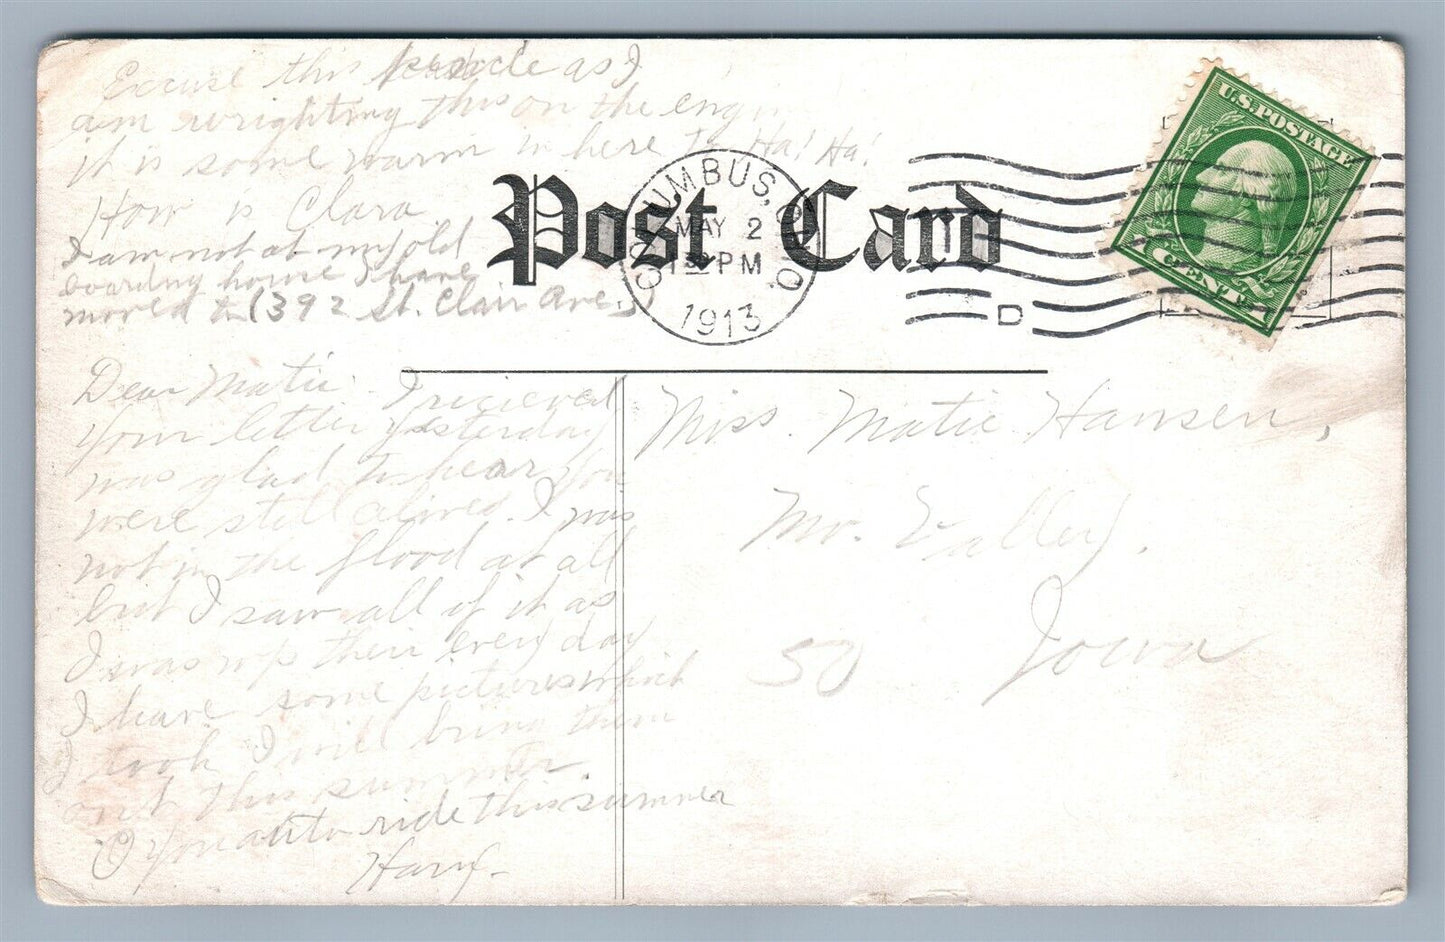 Excuse this as I
am wrighting this on the engin
it is some warm in here to Ha! Ha!
How is Clara.
I am not at my old
boarding house I have
moved to (392 St. Clair Ave.)
Post Card
COLUMBUS, O.
MAY 2
1 30 PM
1913
D
U.S. POSTAGE
1 CENT 1
Dear Matie. I recieved
your letter yesterday
was glad to hear you
were still alived. I was
not in the flood at all
but I saw all of it as
I was up their every day
I have some pictures which
I took I will bring them
out this summer.
O You auto ride this summer
Harry-
Miss. Matie Hansen,
Mo. Valley.
Iowa
50